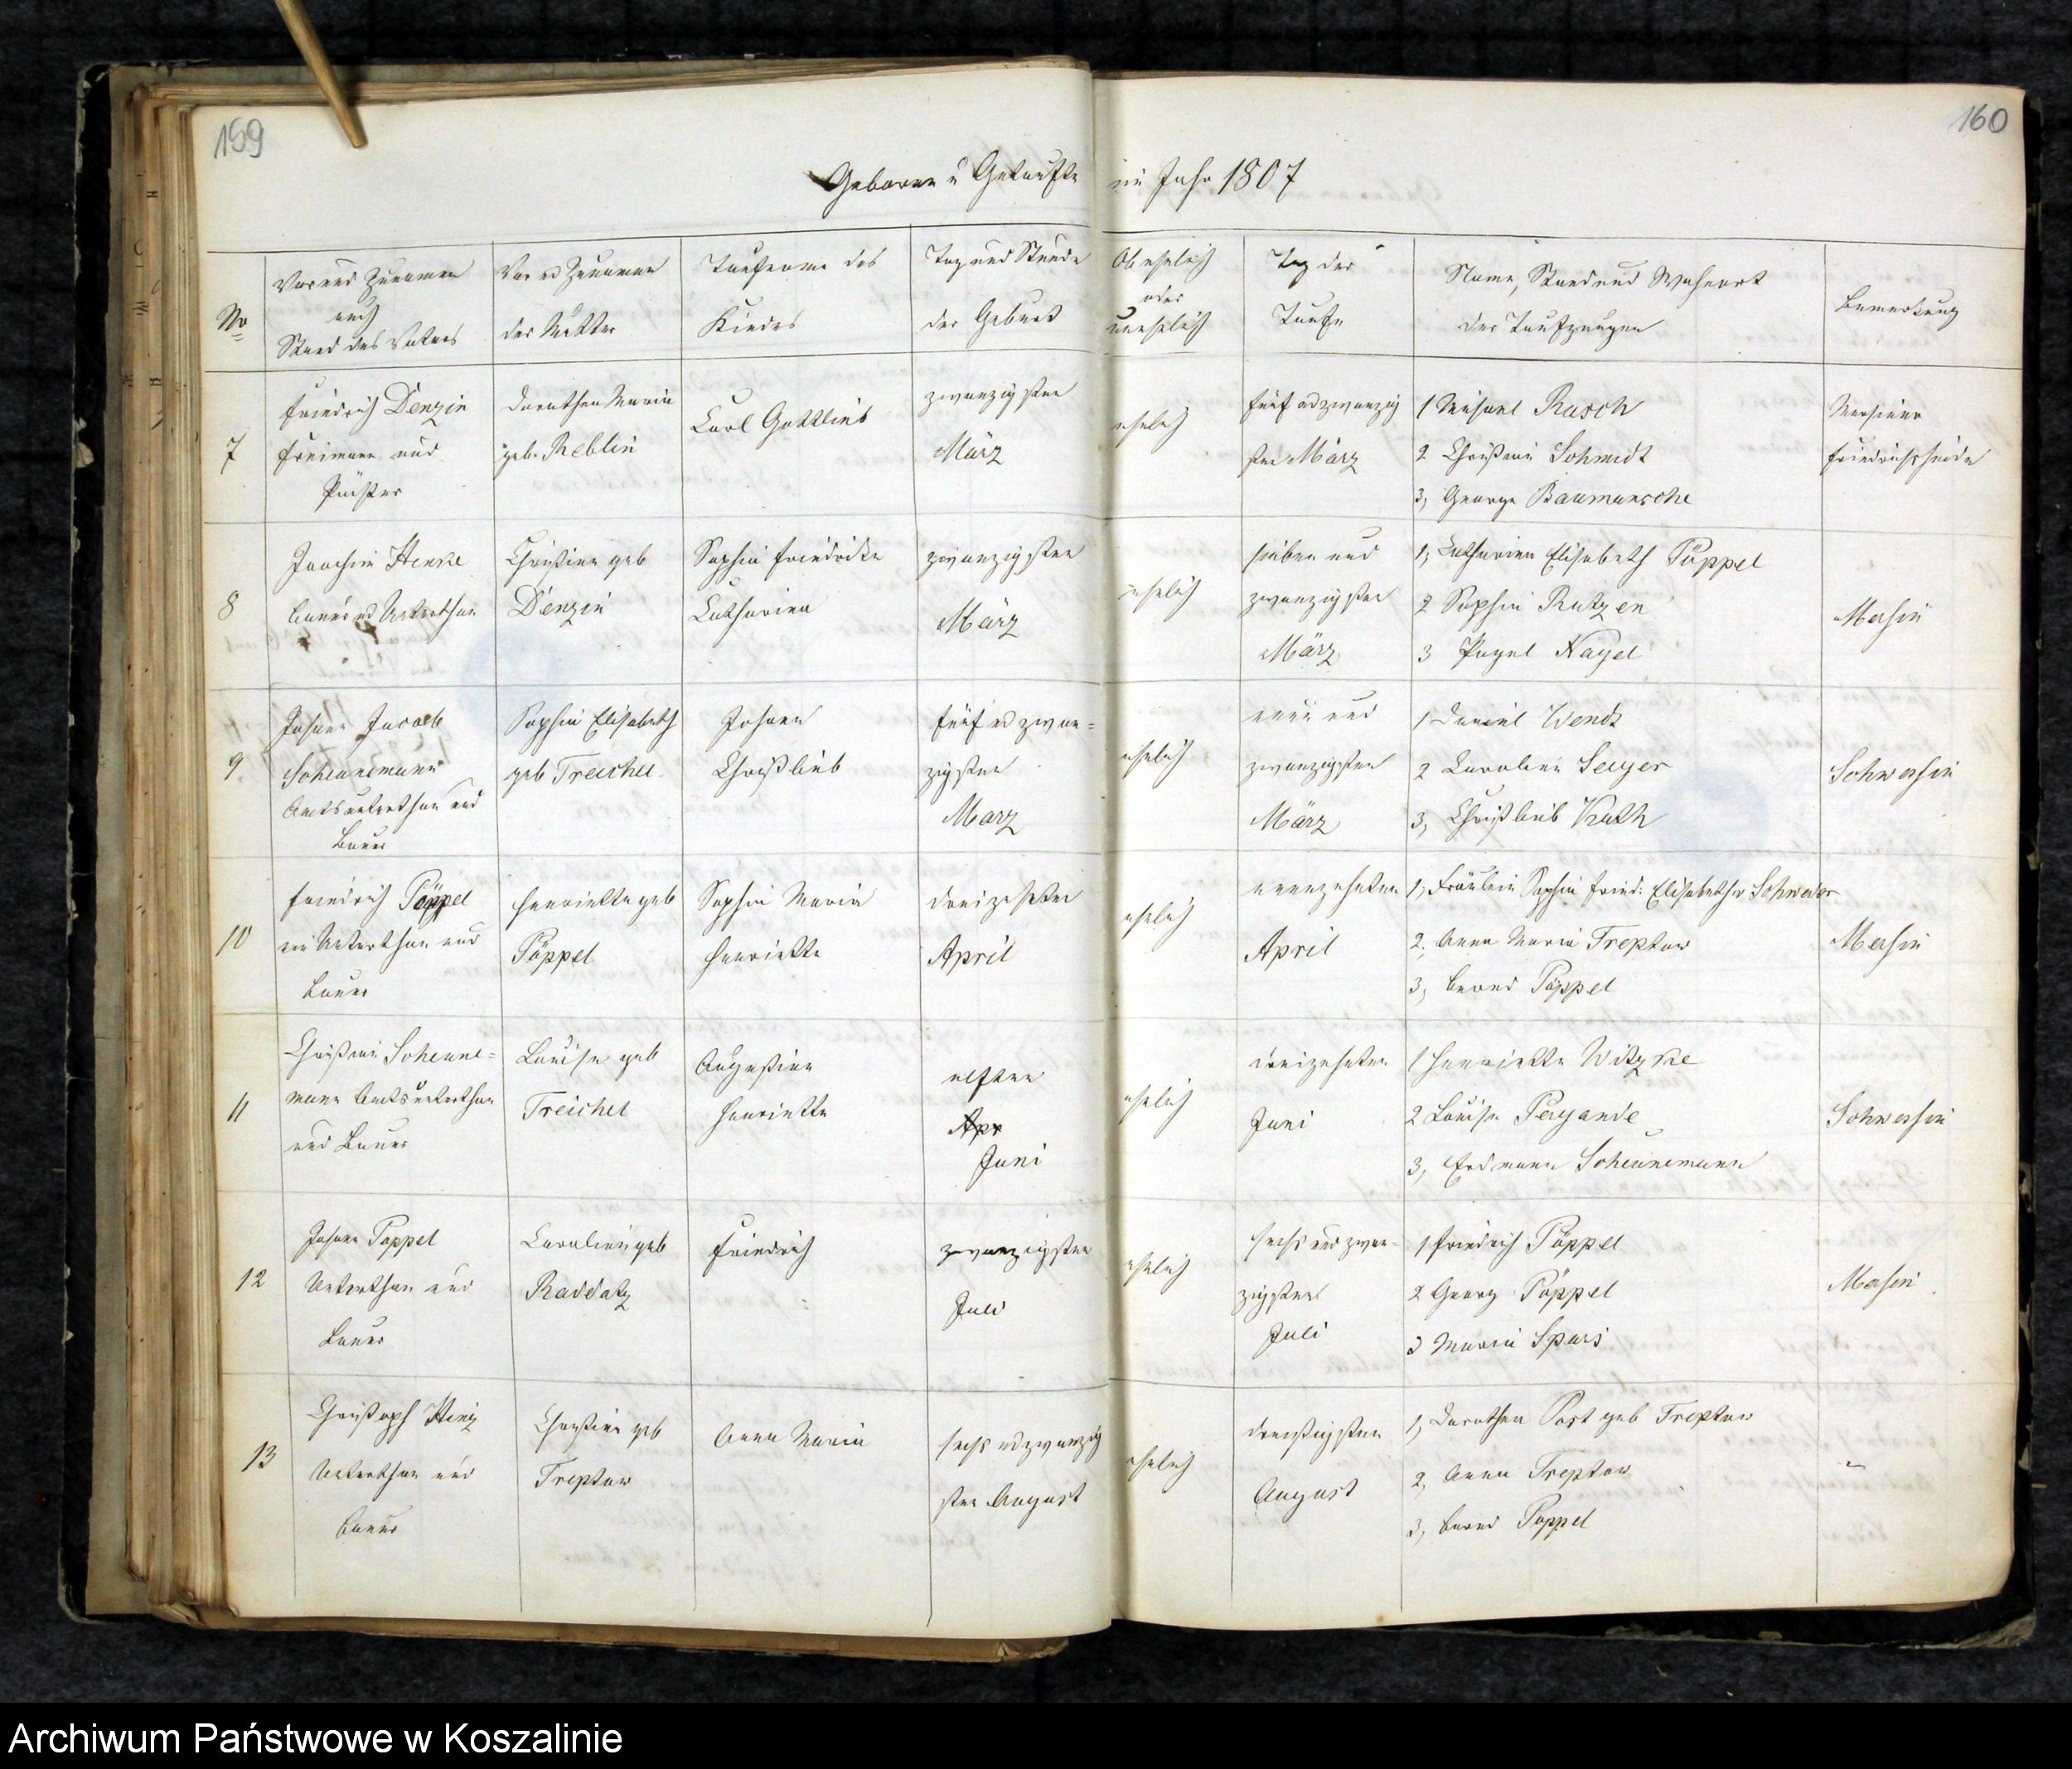 159
160
Geborne u Getaufte im Jahr 1807
No
Vor und Zunamen
auch
Stand des Vaters
Vor ud Zunamen
der Mutter
Taufname des
Kindes
Tag und Stunde
der Geburt
Ob ehelich
oder
unehelich
Tag der
Taufe
Name, Stand und Wohnort
der Taufzeugen
Bemerkung
7
Friedrich Denzin
Freimann und
Pächter
Dorothea Maria
geb. Reblin
Carl Gottlieb
zwanzigsten
März
ehelich
fünf ud zwanzig
sten März
1 Michael Rasch
2 Christian Schmidt
3, George Baumansche
Mersiner
Friedrichsheide
8
Joachim Henke
Bauer ud Unterthan
Christine geb
Denzin
Sophie Friedricke
Catharina
zwanzigsten
März
ehelich
sieben und
zwanzigsten
März
1, Catharina Elisabeth Pöppel
2 Sophie Rutzen
3 Nagel
Mersin
9
Johann Jacob
Scheunemann
Amtsunterthan und
Bauer
Sophie Elisabeth
geb Treichel
Johann
Christlieb
fünf ud zwan=
zigsten
Marz
ehelich
neun und
zwanzigsten
März
1 Daniel Wendt
2 Caroline
3, Christlieb Kath
Schwessin
10
Friedrich Pöppel
ein Unterthan und
Bauer
Henriette geb
Pöppel
Sophie Maria
Henriette
dreizehnten
April
ehelich
neunzehnten
April
1, Fräulein Sophie Fried: Elisabeth v Schweder
2. Anna Maria Treptow
3, Bernd Pöppel
Mersin
11
Christian Scheune=
mann Amtsunterthan
und Bauer
Louise geb
Treichel
Augustine
Henriette
elften
Apr
Juni
ehelich
dreizehnten
Juni
1 Henriette Witzke
2 Louise Pergande
3, Erdmann Scheunemann
Schwessin
12
Johann Poppel
Unterthan und
Bauer
Caroline geb
Raddatz
Friedrich
zwanzigsten
Juli
ehelich
sechs und zwan-
zigsten
Juli
1 Friedrich Pöppel
2 Georg Pöppel
3 Maria
Mersin
13
Christoph
Unterthan und
Bauer
Christine geb
Treptow
Anna Maria
sechs ud zwanzig
sten August
ehelich
dreissigsten
August
1, Dorothea Post geb Treptow
2, Anna Treptow
3, Bernd Poppel
Archiwum Państwowe w Koszalinie